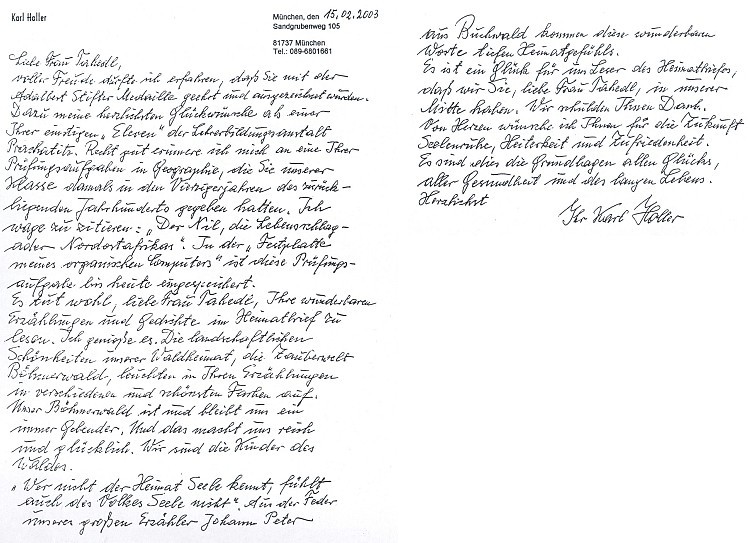 Karl Holler
München, den 15.02.2003
Sandgrubenweg 105
81737 München
Tel.: 089-6801661
Liebe Frau Tahedl,
voller Freude durfte ich erfahren, daß Sie mit der
Adalbert Stifter Medaille geehrt und ausgezeichnet wurden.
Dazu meine herzlichsten Glückwünsche als einer
Ihrer einstigen „Eleven" der Lehrerbildungsanstalt
Prachatitz. Recht gut erinnere ich mich an eine Ihrer
Prüfungsaufgaben in Geographie, die Sie unserer
Klasse damals in den Vierzigerjahren des zurück-
liegenden Jahrhunderts gegeben hatten. Ich
wage zu zitieren: „Der Nil, die Lebensschlag-
ader Nordostafrikas". In der „Festplatte
meines organischen Computers" ist diese Prüfungs-
aufgabe bis heute eingespeichert.
Es tut wohl, liebe Frau Tahedl, Ihre wunderbaren
Erzählungen und Gedichte im Heimatbrief zu
lesen. Ich genieße es. Die landschaftlichen
Schönheiten unserer Waldheimat, die Zauberwelt
Böhmerwald, leuchten in Ihren Erzählungen
in verschiedenen und schönsten Farben auf.
Unser Böhmerwald ist und bleibt uns ein
immer Gebender. Und das macht uns reich
und glücklich. Wir sind die Kinder des
Waldes.
„Wer nicht der Heimat Seele kennt, fühlt
auch des Volkes Seele nicht". Aus der Feder
unseres großen Erzähler Johann Peter
aus Buchwald kommen diese wunderbaren
Worte tiefen Heimatgefühls.
Es ist ein Glück für uns Leser des Heimatbriefes,
daß wir Sie, liebe Frau Tahedl, in unserer
Mitte haben. Wir schulden Ihnen Dank.
Von Herzen wünsche ich Ihnen für die Zukunft
Seelenruhe, Heiterkeit und Zufriedenheit.
Es sind dies die Grundlagen allen Glücks,
aller Gesundheit und des langen Lebens.
Herzlichst
Ihr Karl Holler